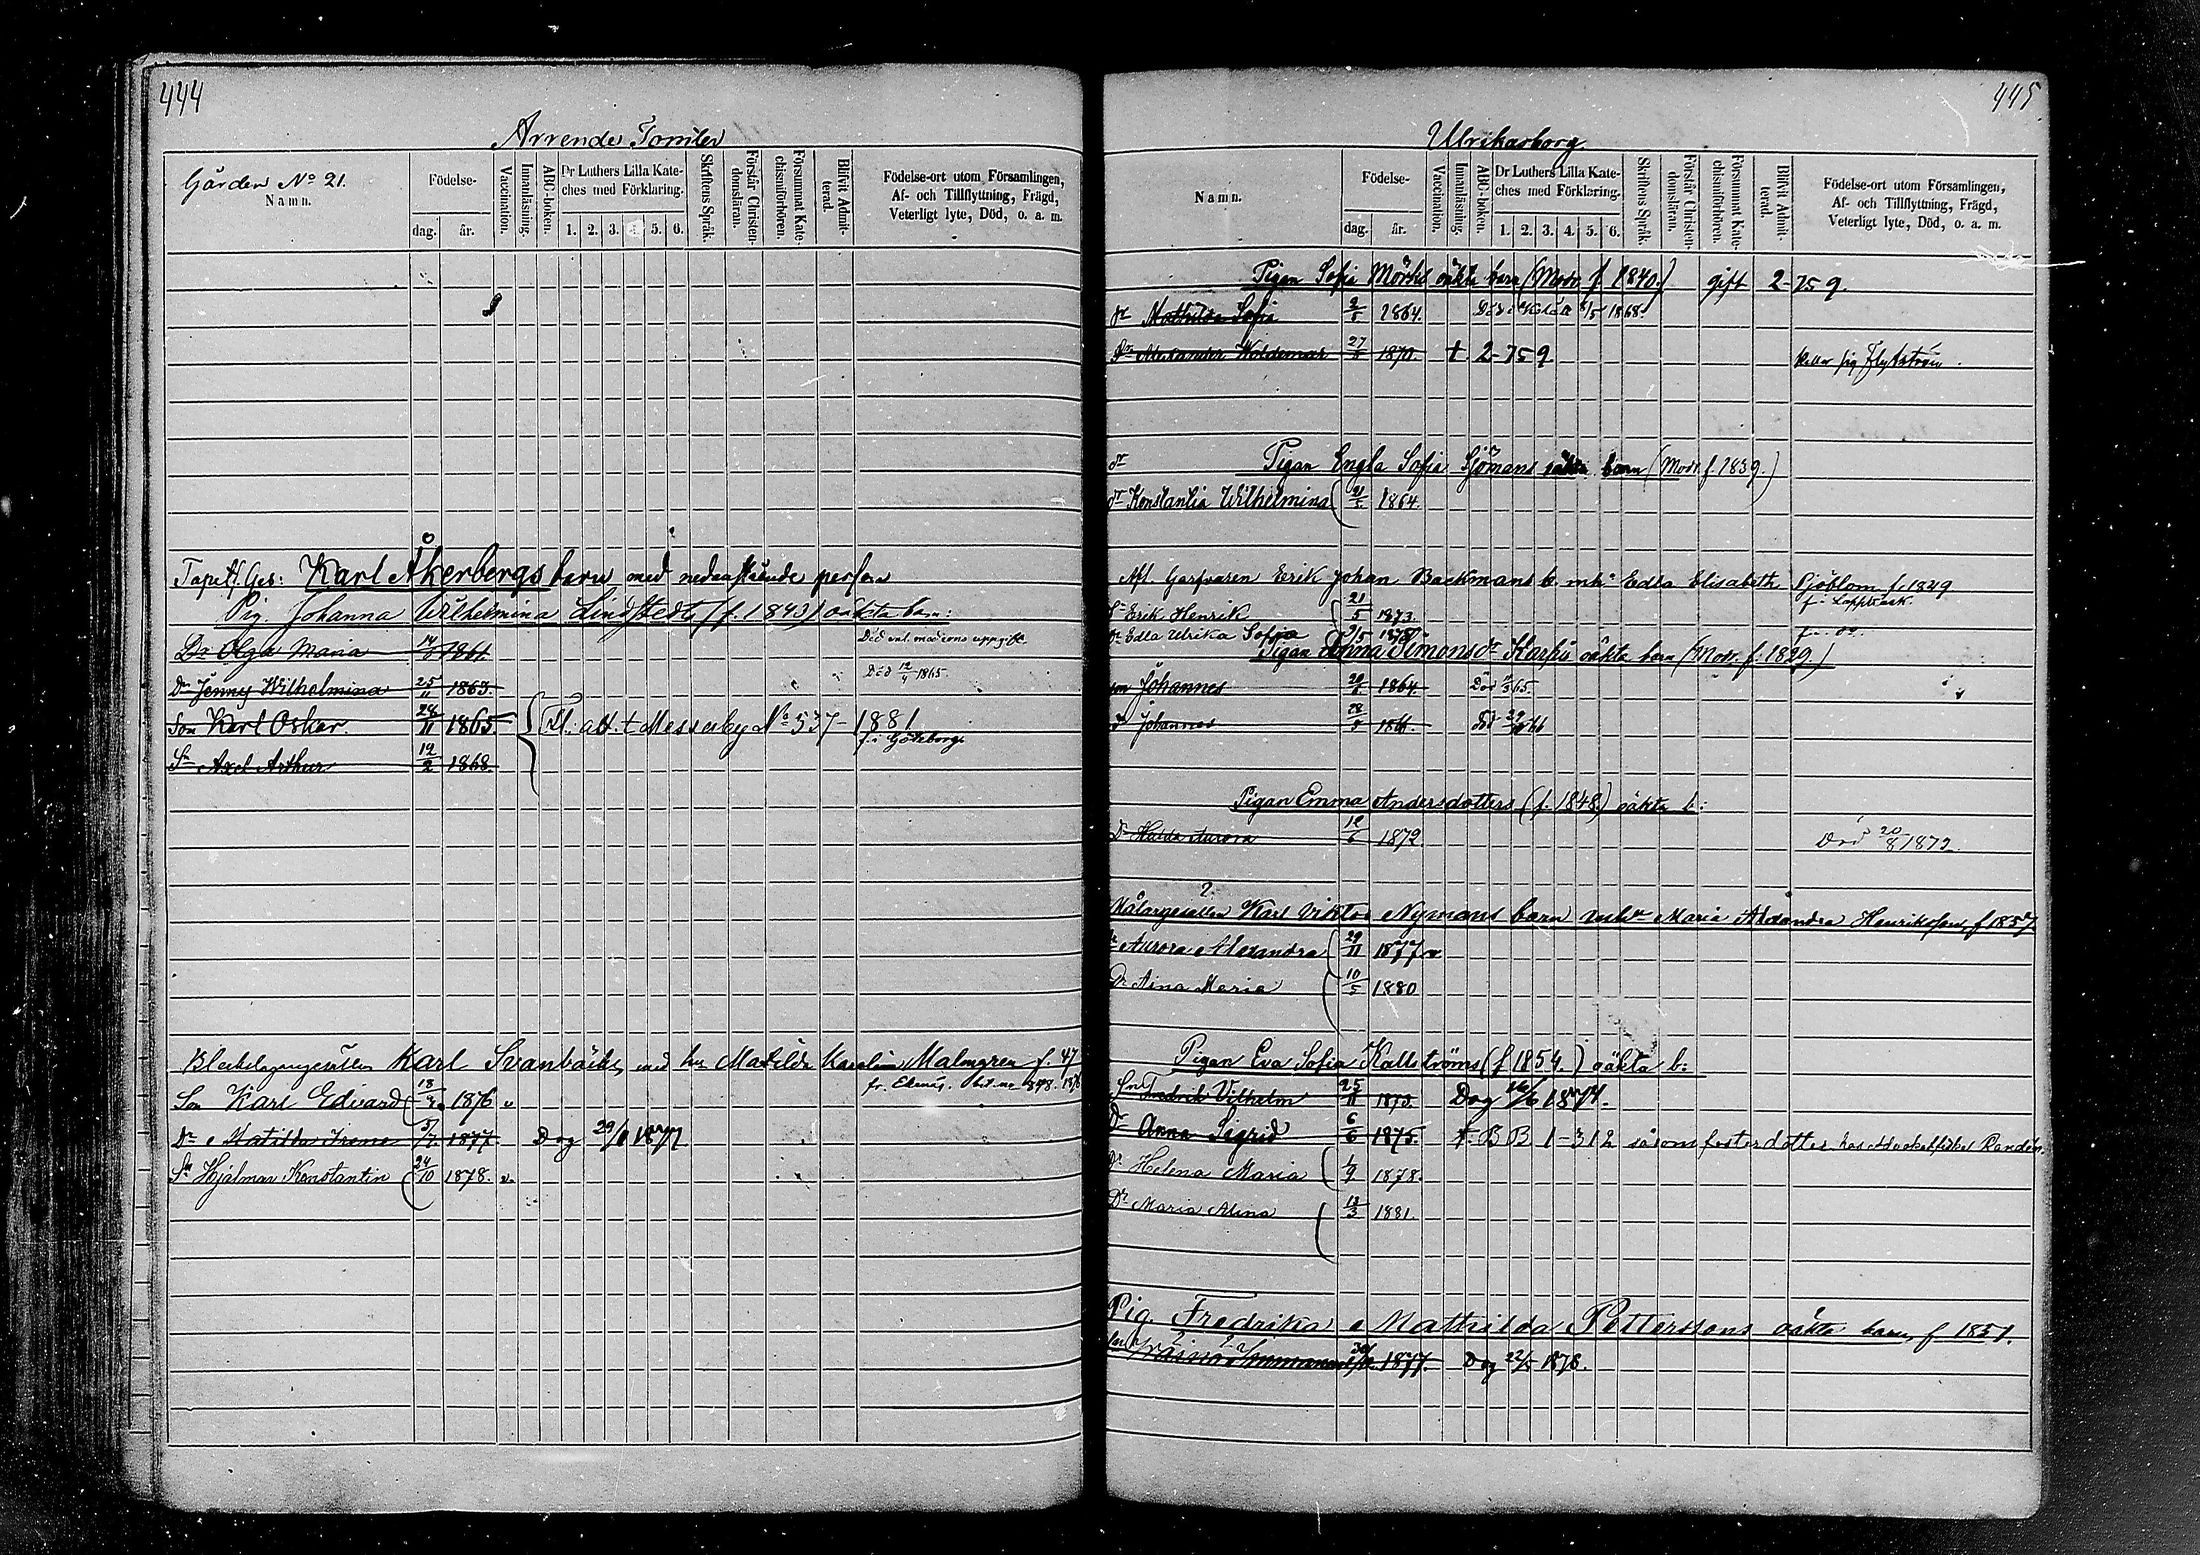 444
Arrende Tomter
Gården No 21.
Namn.
Födelse-
dag.
år.
Vaccination.
Innanläsning.
ABC-boken.
Dr Luthers Lilla Kate-
ches med Förklaring.
1. 2. 3. 4. 5. 6.
Skriftens Språk.
Förstår Christen-
domsläran.
Försummat Kate-
chismiförhören.
Blifvit Admit-
terad.
Födelse-ort utom Församlingen,
Af- och Tillflyttning, Frägd,
Veterligt lyte, Död, o. a. m.
Tapets. Ges: Karl Åkerbergs barn med nedanstående person
Pig. Johanna Wilhelmina Lindstedts (f. 1842) oäkta barn:
Dr Olga Maria 1861. Död enl. moderns uppgift
Dr Jenny Wilhelmina 25/11 1863 Död 12/4 1865
Son Karl Oskar. 28/11 1865 Fl. att t Messuby No 537 - 1881
f. i Göteborg
Sn Axel Arthur 12/2 1868.
Karl Svanbäcks, med hu Matilda Karolina Malmgren f. 47
fr. Ekenäs, bet. no 848. 1876
Son Karl Edvard 1876 v
Dr Matilda Irene 5/7 1877 Dog 29/8 1877
Sn Hjalmar Konstantin 24/10 1878. v.
445
Ulrikasborg
Namn.
Födelse-
dag.
år.
Vaccination.
Innanläsning.
ABC-boken.
Dr Luthers Lilla Kate-
ches med Förklaring.
1. 2. 3. 4. 5. 6.
Skriftens Språk.
Förstår Christen-
domsläran.
Försummat Kate-
chismiförhören.
Blifvit Admit-
terad.
Födelse-ort utom Församlingen,
Af- och Tillflyttning, Frägd,
Veterligt lyte, Död, o. a. m.
Pigan Sofia Mörsks oäkta barn (Modr. f. 1840.) gift 2-759.
dr Mathilda Sofia 1864. Död 1868.
Sn Alexander Woldemar 1870 t 2-759 kallar sig Flytström.
dr Pigan Engla Sofia Sjömans oäkta barn (Modr. f. 1839.)
dr Konstantia Wilhelmina 1864.
Afl. Garfvaren Erik Johan Backmans b. m. h. Edla Elisabeth Sjöblom f. 1849
f. i Lappträsk.
Sn Erik Henrik 21/5 1873.
Dr Edla Ulrika Sofia 1878
Pigan Anna Simonsdr Karhu oäkta barn (Modr. f. 1829)
son Johannes 1864 Död 65.
Johannes 1866. död 66
Pigan Emma Andersdotters (f. 1848.) oäkta b:
Dr Hulda Aurora 12/6 1872 Död 20/8 1872
?
Målaregesällen Karl Viktor Nymans barn m. hu Maria Alexandra Henriksson, f 1857.
Dr Aurora Alexandra 29/11 1877 v
Dr Aina Maria 10/5 1880
Pigan Eva Sofia Kallströms (f 1854.) oäkta b:
Sn Fredrik Vilhelm 25/11 1873. Dog 1874.
Dr Anna Sigrid 6/6 1875. t. BB 1-312 såsom fosterdotter hos
Dr Helena Maria 1/9 1878.
Dr Maria Alina 13/3 1881.
Pig. Fredrika Mathilda Petterssons oäkta barn, f. 1851.
1877. Dog 22/5 1878.